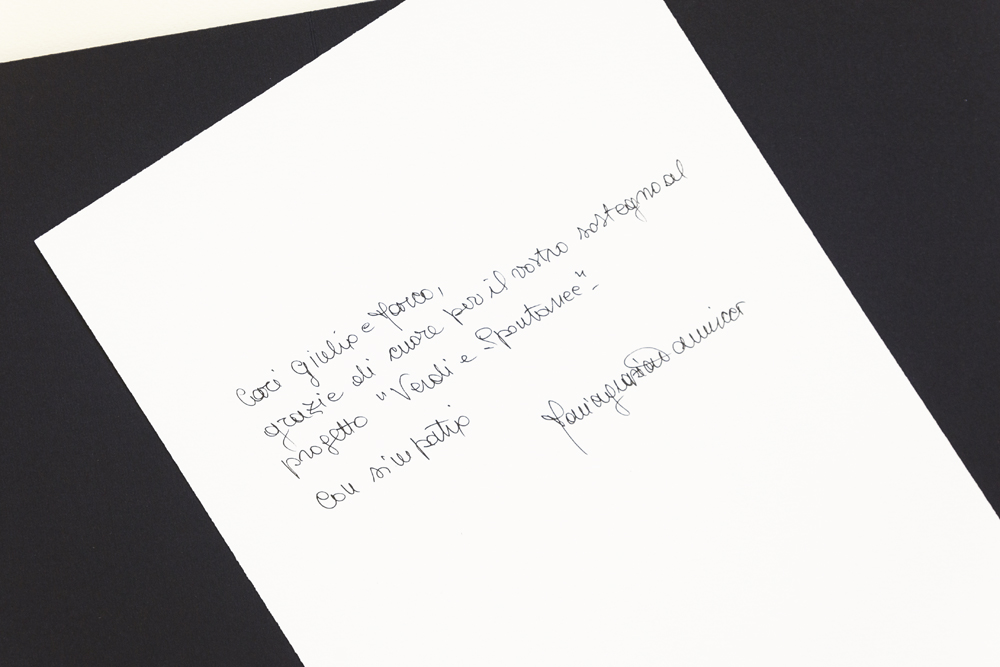 Cari Giulio e Marco,
grazie di cuore per il vostro sostegno al
progetto "Verdi e Spontanee"-
Con simpatia
Mariagrazia